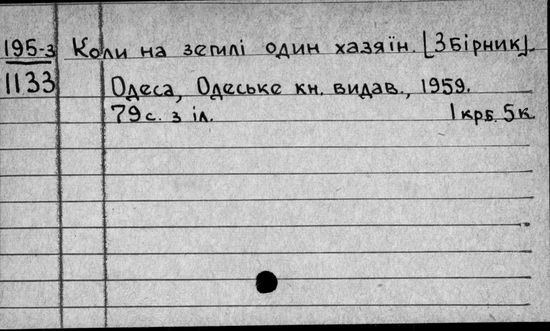 195-з Коли на землі один хазяїн. [Збірник].
1133 Одеса, Одеське кн. видав., 1959.
79с. з іл. 1 крб. 5 к.